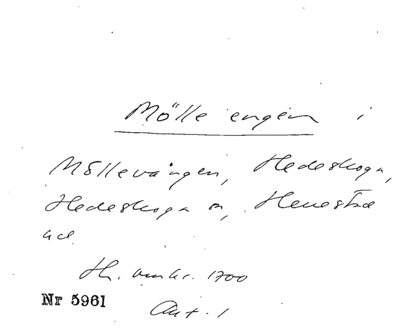 Mölle engen i
Möllevången, Hedeskoga,
Hedeskoga sn, Herrestad
hd.
Th. omkr. 1700
Ant. 1
Nr 5961